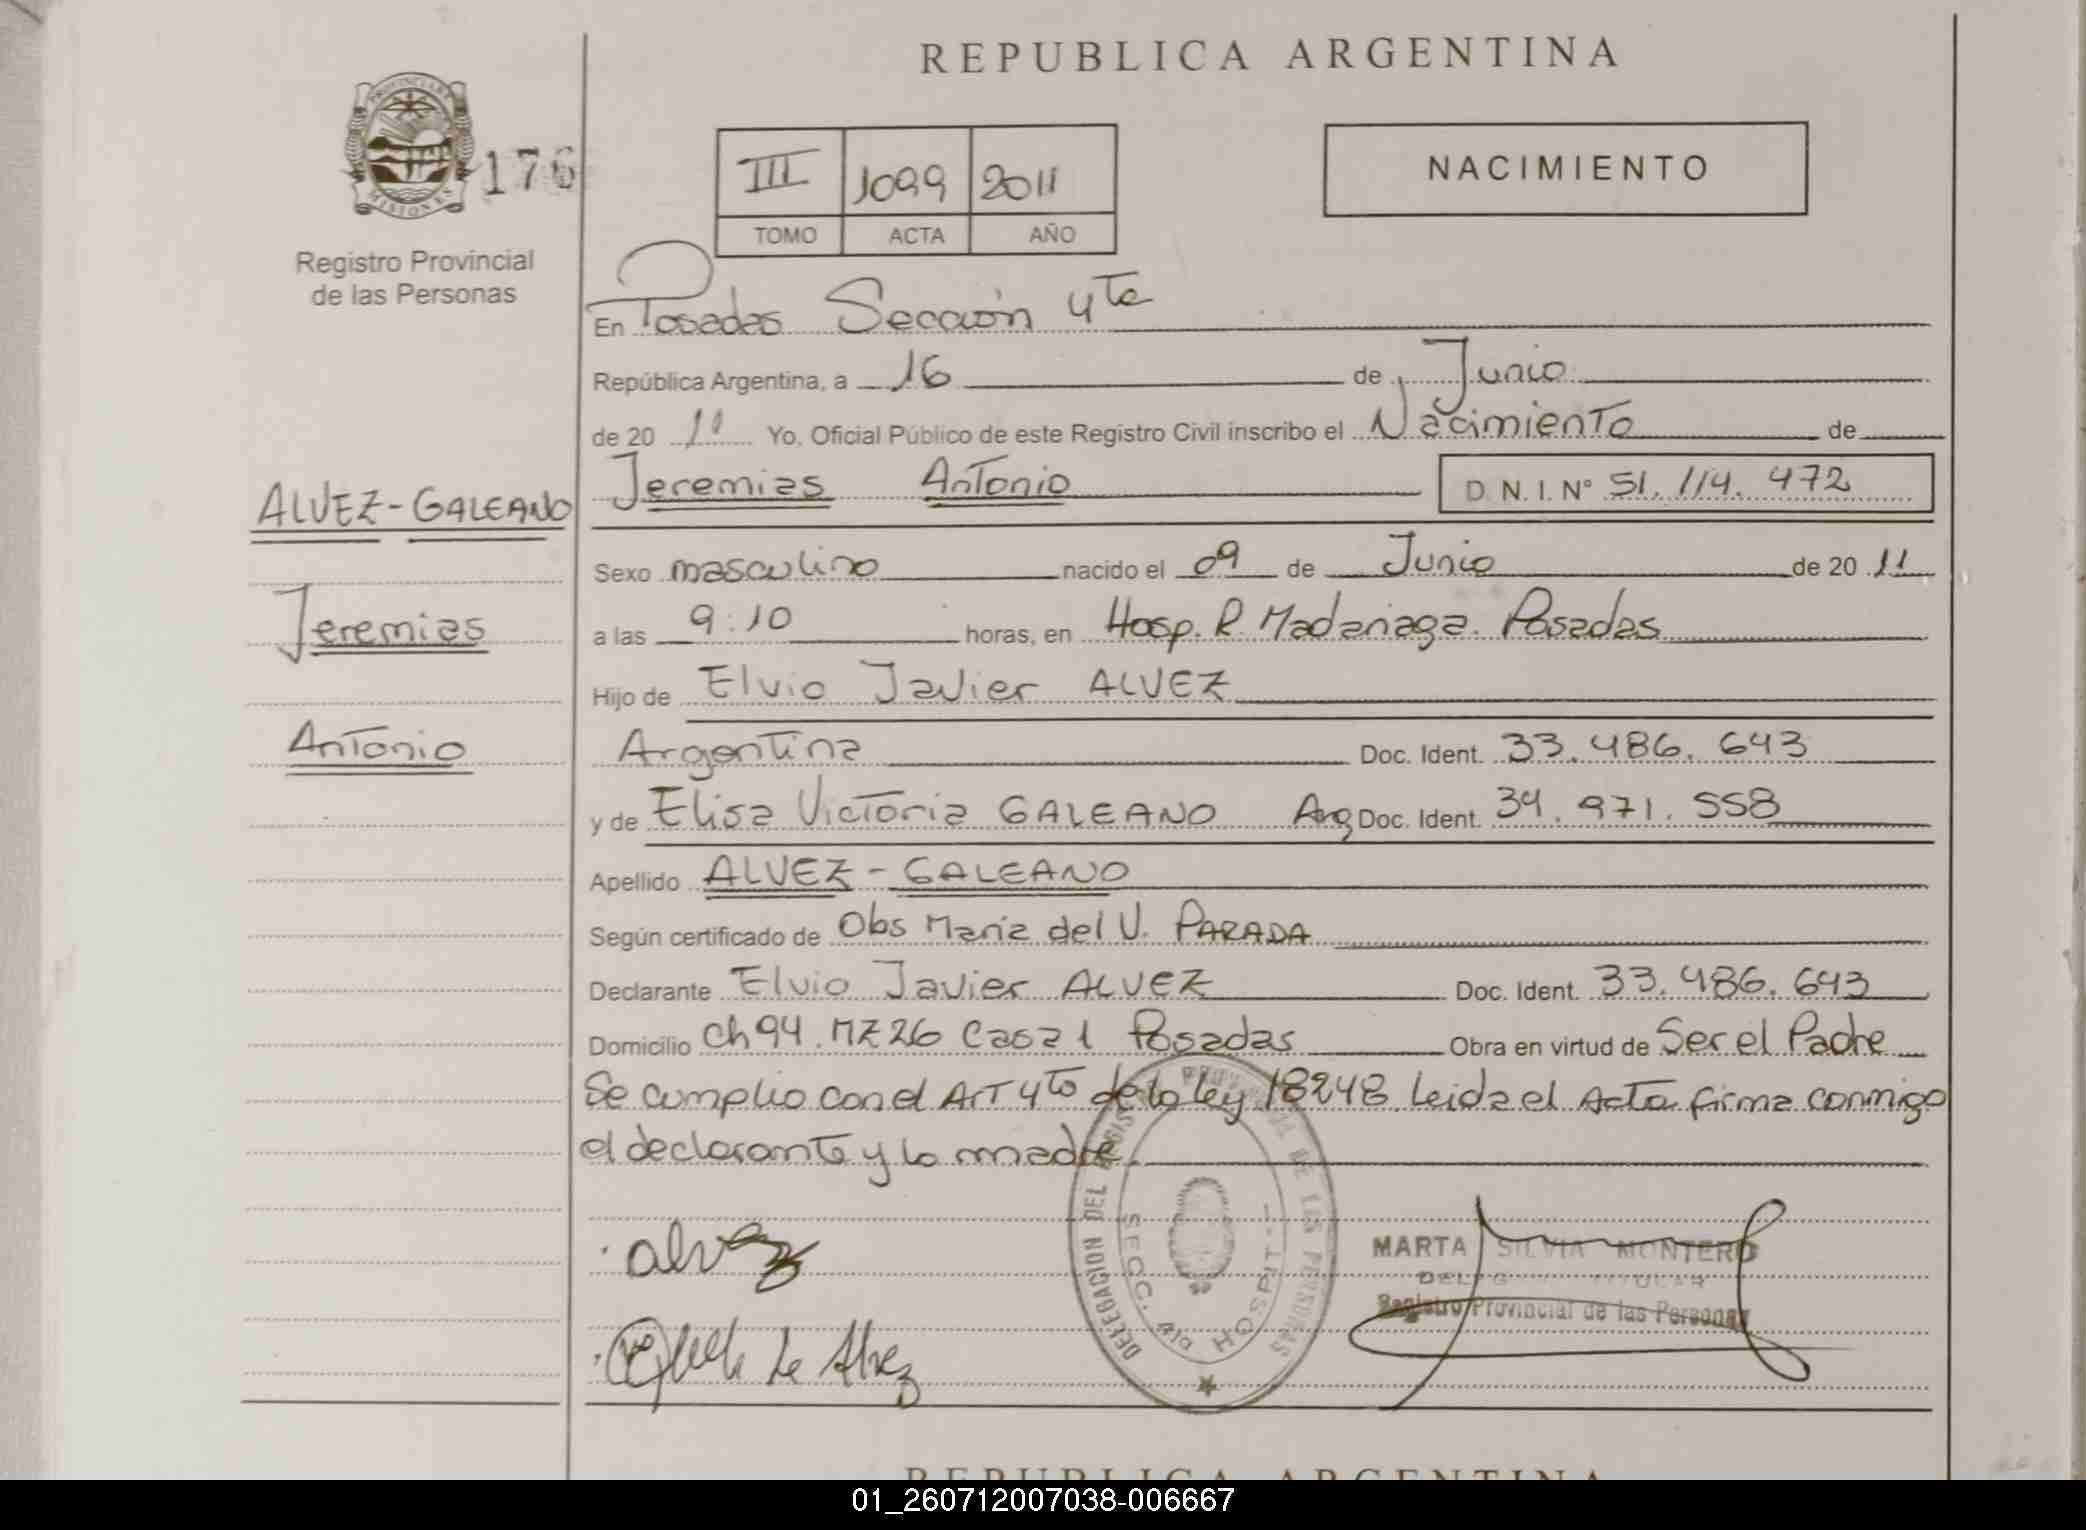 REPUBLICA ARGENTINA
PROVINCIA DE
MISIONES
176
III 1099 2011
TOMO ACTA AÑO
NACIMIENTO
Registro Provincial
de las Personas
En Posadas Sección 4ta
República Argentina, a 16 de Junio
de 20 11 Yo, Oficial Público de este Registro Civil inscribo el Nacimiento de
Jeremias Antonio D.N.I. Nº 51.114.472
ALVEZ-GALEANO
Sexo masculino nacido el 09 de Junio de 20 11
Jeremias
a las 9:10 horas, en Hosp. R. Madariaga. Posadas
Hijo de Elvio Javier ALVEZ
Antonio
Argentina Doc. Ident. 33.486.643
y de Elisa Victoria GALEANO Arg Doc. Ident. 34.971.558
Apellido ALVEZ-GALEANO
Según certificado de Obs Maria del V. PARADA
Declarante Elvio Javier ALVEZ Doc. Ident. 33.486.643
Domicilio Ch94. MZ26 Casa 1 Posadas Obra en virtud de Ser el Padre
Se cumplio con el Art 4to de la ley 18248 Leida el Acta firma conmigo
el declarante y la madre.
DELEGACION DEL REGISTRO PROVINCIAL DE LAS PERSONAS
SECC. 4ta HOSPIT
alvez
MARTA SILVIA MONTERO
DELEGADA TITULAR
Registro Provincial de las Personas
de Alvez
REPUBLICA ARGENTINA
01_260712007038-006667